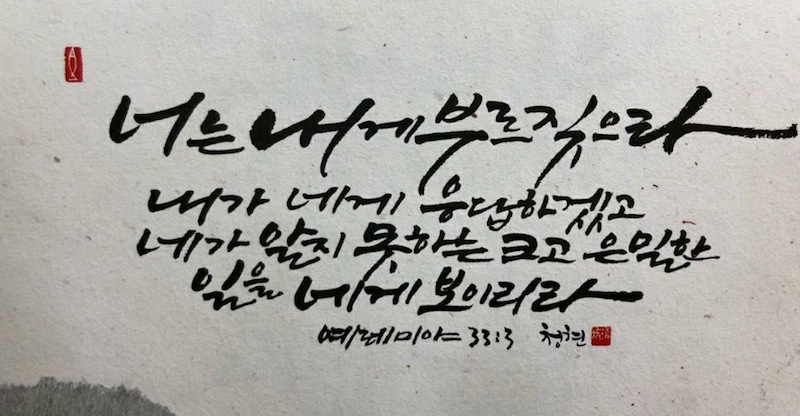 너는 내게 부르짖으라
내가 네게 응답하겠고
네가 알지 못하는 크고 은밀한
일을 네게 보이리라
예레미야 33:3 청현